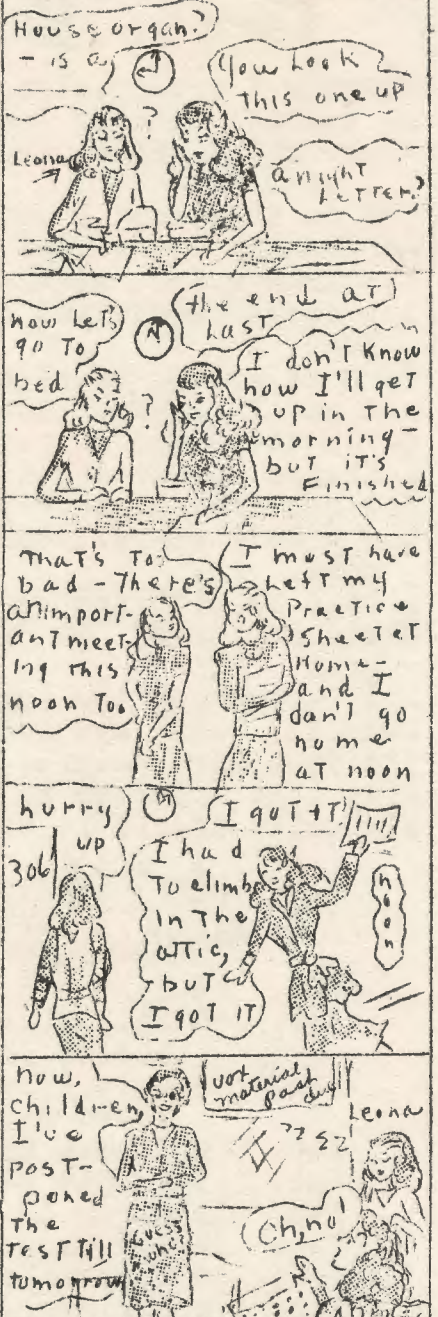 House organ?
- is a
You Look
this one up
Leona
?
a night
Letter?
now Let's
go To
bed
the end at
Last
?
I don't know
how I'll get
up in The
morning -
but it's
Finished
That's To
bad - There's
an import-
ant meet-
ing this
noon Too
I must have
Left my
Practice
Sheet et
Home -
and I
don't go
home
at noon
hurry
up
306
I got it!
I had
To climb
In The
attic,
but
I got IT
noon
now,
children,
I've
post-
poned
the
test till
tomorrow
vox
material
past
due
Leona
Oh, no!